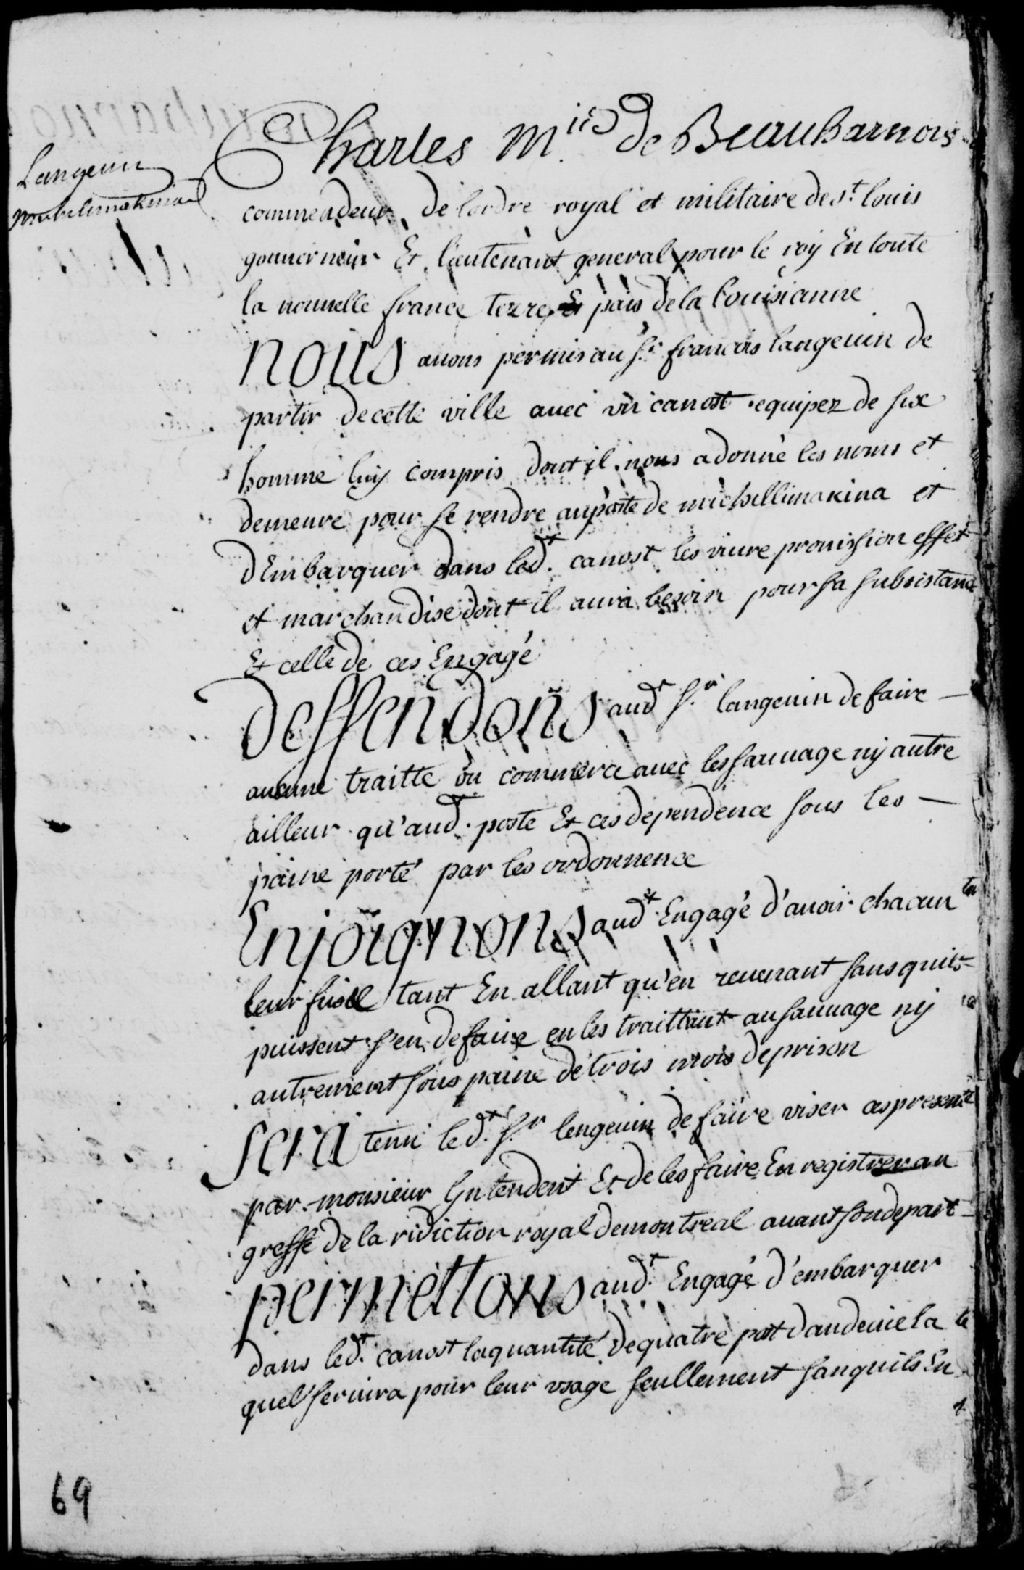 Langeuin
michilimakinac
Charles M.is de Beauharnois
commendeur de lordre royal et militaire de st. louis
gouuerneur Et lieutenant general pour le roy En toute
la nouuelle france terre Et païs de la louisianne
nous auons permis au sr. francois langeuin de
partir de cette ville auec vn canost equipez de six
homme luy compris dont il nous a donné les noms et
demeure pour se rendre au poste de michillimakina et
d'Embarquer dans led.t canost les viure prouission effet
et marchandise dont il aura besoin pour sa subsistance
Et celle de ces Engagé
deffendons aud.t sr. langeuin de faire
aucune traitte ou commerce auec les sauuage ny autre
ailleur qu'aud.t poste Et ces dependence sous les
paine porté par les ordonnence
Enjoignons aud.t Engagé d'auoir chacun
leur fusil tant En allant qu'en reuenant sans quils
puissent s'en defaire en les traittant au sauuage ny
autrement sous paine de trois mois de prison
sera tenu led.t sr. lengeuin de faire viser ces presente
par monsieur Intendent Et de les faire En registrer au
greffe de la ridiction royal de montreal auant son depart
permettons aud.t Engagé d'embarquer
dans led.t canost la quantité de quatre pot d'audeuie la
quel seruira pour leur vsage seullement sanquils En
69